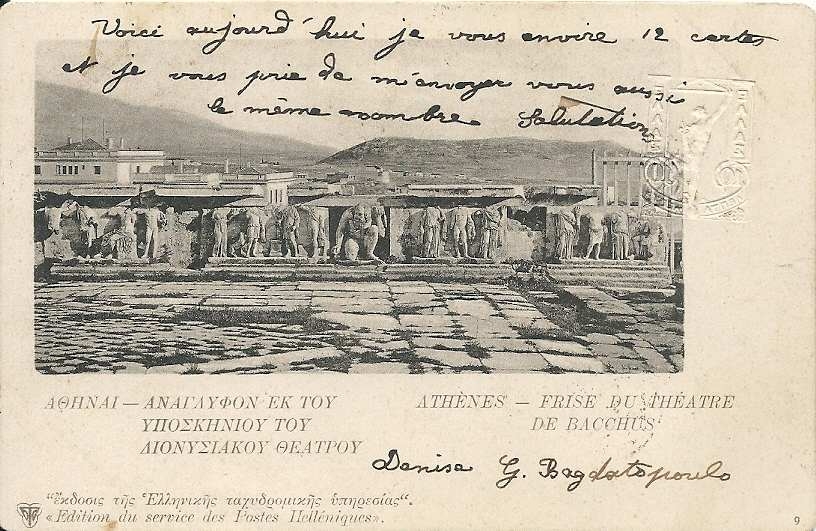 Voici aujourd'hui je vous envoie 12 cartes
et je vous prie de m'envoyer vous aussi
le même nombre. Salutations
ΕΛΛΑΣ
ΑΘΗΝΑΙ — ΑΝΑΓΛΥΦΟΝ ΕΚ ΤΟΥ
ΥΠΟΣΚΗΝΙΟΥ ΤΟΥ
ΔΙΟΝΥΣΙΑΚΟΥ ΘΕΑΤΡΟΥ
ATHÈNES — FRISE DU THÉATRE
DE BACCHUS
Denise G. Bagdatopoulo
"ἔκδοσις τῆς Ἑλληνικῆς ταχυδρομικῆς ὑπηρεσίας".
«Edition du service des Postes Helléniques».
9